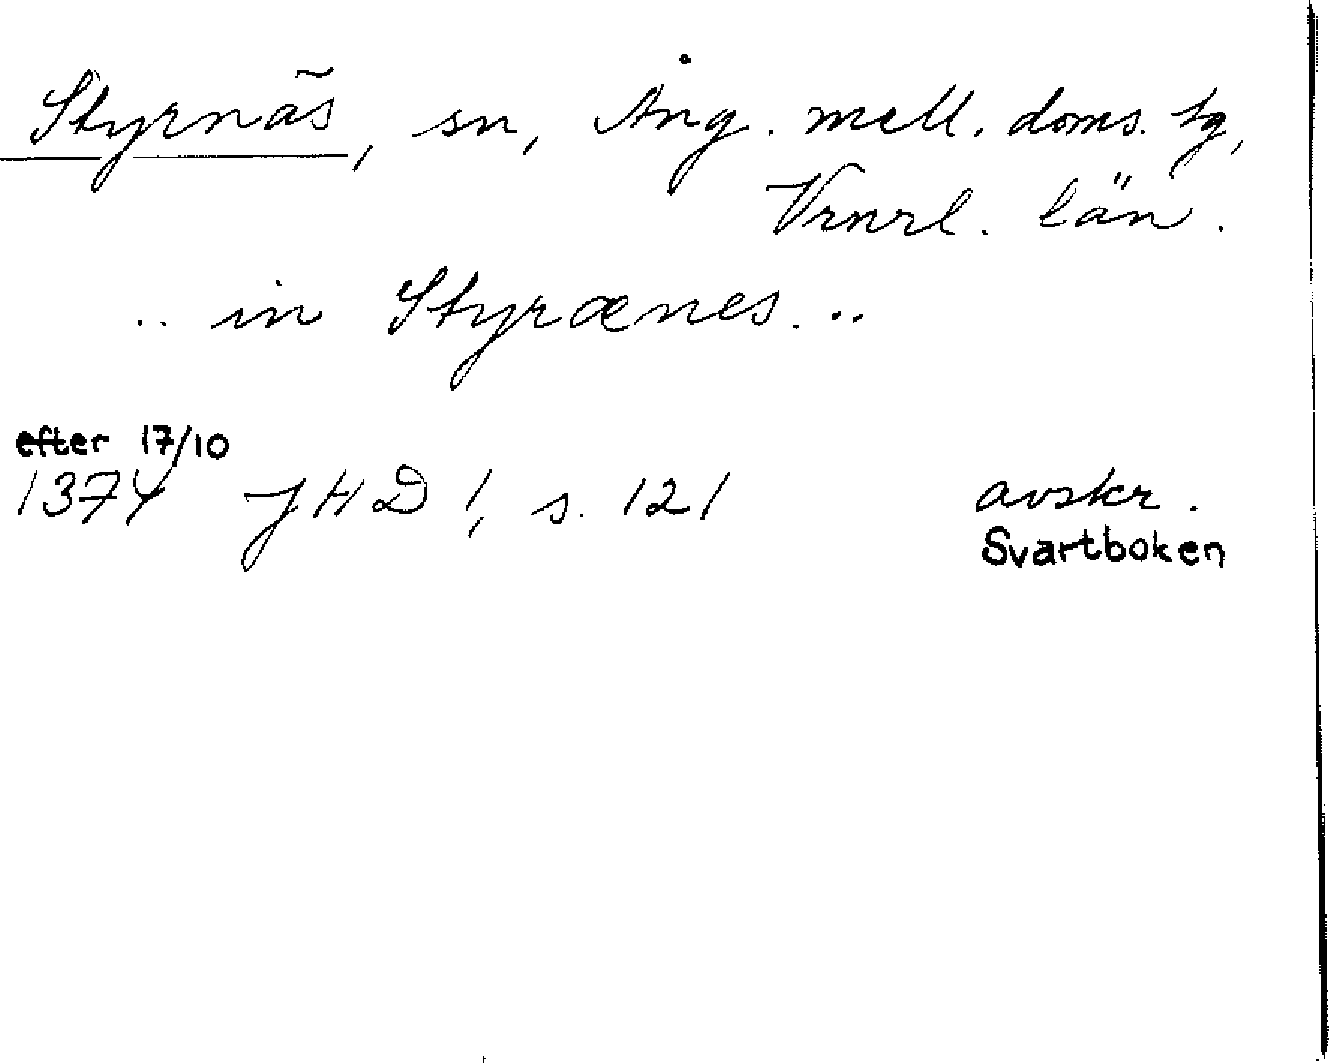 Styrnäs, sn, Ång. mell. doms. tg,
Vrnrl. län.
.. in Styrænes. ..
efter 17/10
1374 JHD 1, s. 121 avskr.
Svartboken